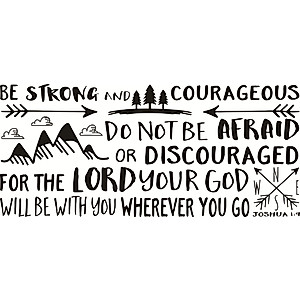 BE STRONG AND COURAGEOUS
DO NOT BE AFRAID
OR DISCOURAGED
FOR THE LORD YOUR GOD
WILL BE WITH YOU WHEREVER YOU GO
N
W E
S
JOSHUA 1:9